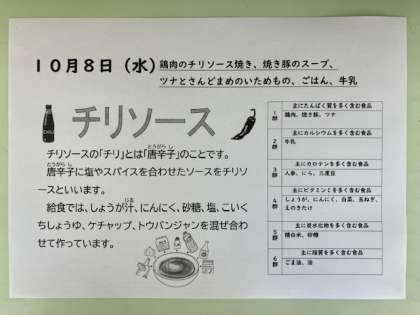 10月8日(水) 鶏肉のチリソース焼き、焼き豚のスープ、
ツナとさんどまめのいためもの、ごはん、牛乳
チリソース
チリソースの「チリ」とは「唐辛子」のことです。
とうがらし
唐辛子に塩やスパイスを合わせたソースをチリソ
とうがらし
ースといいます。
給食では、しょうが汁、にんにく、砂糖、塩、こいく
じる
ちしょうゆ、ケチャップ、トウバンジャンを混ぜ合わ
せて作っています。
CHILI
主にたんぱく質を多く含む食品
1群
鶏肉、焼き豚、ツナ
主にカルシウムを多く含む食品
2群
牛乳
主にカロテンを多く含む食品
3群
人参、にら、三度豆
主にビタミンCを多く含む食品
4群
しょうが、にんにく、白菜、玉ねぎ、
えのきたけ
主に炭水化物を多く含む食品
5群
精白米、砂糖
主に脂質を多く含む食品
6群
ごま油、油